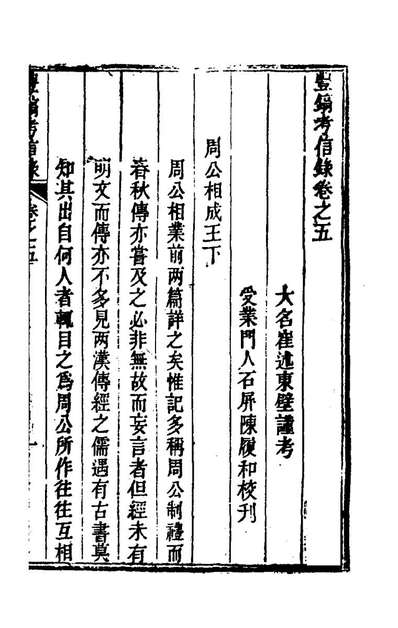 豐鎬考信錄卷之五
大名崔述東壁謹考
受業門人石屏陳履和校刊
周公相成王下
周公相業前兩篇詳之矣惟記多稱周公制禮而
春秋傳亦嘗及之必非無故而妄言者但經未有
明文而傳亦不多見兩漢傳經之儒遇有古書莫
知其出自何人者輒目之為周公所作往往互相
豐鎬考信錄 卷之五